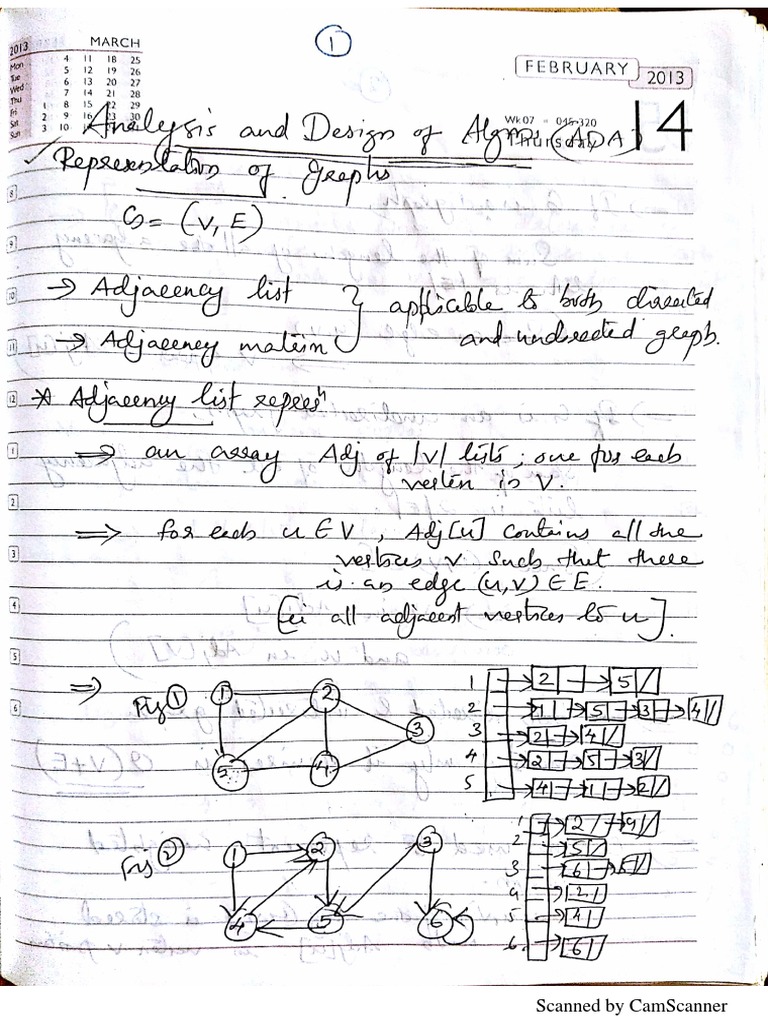 1
2013 MARCH
Mon 4 11 18 25
Tue 5 12 19 26
Wed 6 13 20 27
Thu 7 14 21 28
Fri 1 8 15 22 29
Sat 2 9 16 23 30
Sun 3 10
FEBRUARY 2013
Wk 07 045-320
Thursday 14
Analysis and Design of Algms (ADA)
✓ Representation of Graphs
G = (V, E)
→ Adjacency list
→ Adjacency matrix
} applicable to both directed
and undirected graph.
* Adjacency list represⁿ
⇒ an array Adj of |V| lists; one for each
vertex in V.
⇒ for each u ∈ V, Adj[u] contains all the
vertices v such that there
is an edge (u,v) ∈ E.
[ie all adjacent vertices to u].
⇒ Fig ①
1 2 3 4 5
1 → 2 → 5 /
2 → 1 → 5 → 3 → 4 /
3 → 2 → 4 /
4 → 2 → 5 → 3 /
5 → 4 → 1 → 2 /
Fig ②
1 2 3 4 5 6
1 → 2 → 4 /
2 → 5 /
3 → 6 → 5 /
4 → 2 /
5 → 4 /
6 → 6 /
8
9
10
11
12
1
2
3
4
5
6
Scanned by CamScanner